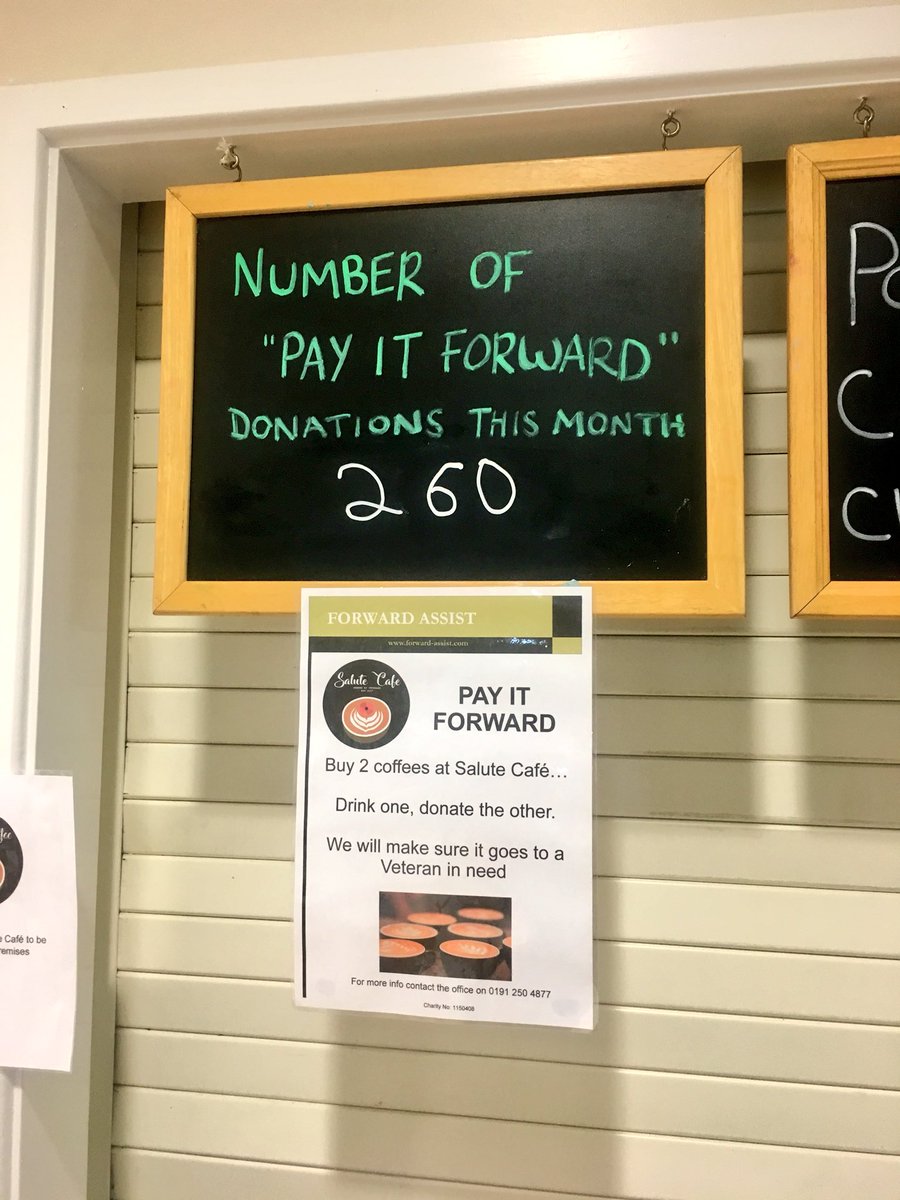 NUMBER OF
"PAY IT FORWARD"
DONATIONS THIS MONTH
260
FORWARD ASSIST
www.forward-assist.com
Salute Cafe
PAY IT
FORWARD
Buy 2 coffees at Salute Café...
Drink one, donate the other.
We will make sure it goes to a
Veteran in need
For more info contact the office on 0191 250 4877
Charity No: 1150408
Café to be